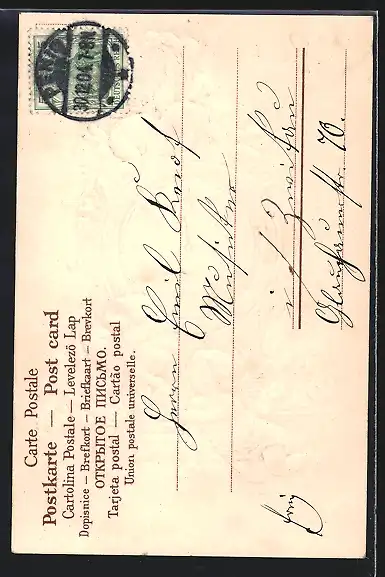 Carte Postale
Postkarte — Post card
Cartolina Postale — Levelező Lap
Dopisnice — Brefkort — Briefkaart — Brevkort
ОТКРЫТОЕ ПИСЬМО.
Tarjeta postal — Cartão postal
Union postale universelle.
30.12.04. 7-8N.
DEUTSCHES REICH
Herrn Emil
Musiker
in Zwickau
70.
frei